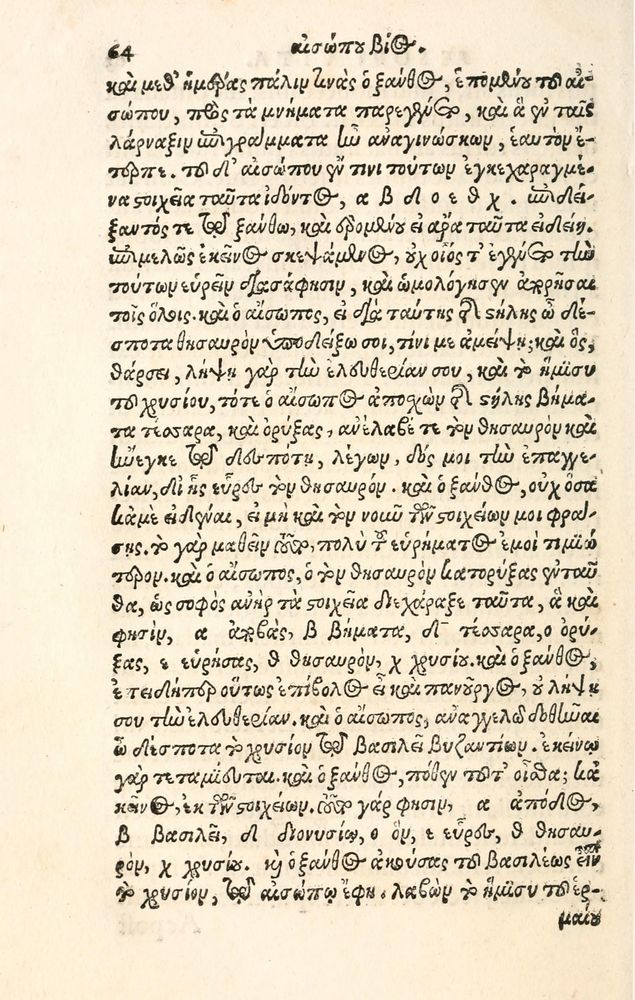 64 αἰσώπου βίος.
καὶ μεθ' ἡμέρας πάλιν τινὰς ὁ ξάνθος, ἑπομένου τοῦ αἰ-
σώπου, πρὸς τὰ μνήματα παρεγένετο, καὶ ἃ ἐν ταῖς
λάρναξιν ἐπιγράμματα ἦν ἀναγινώσκων, ἑαυτὸν ἔ-
τερπε. τοῦ δ' αἰσώπου ἔν τινι τούτων ἐγκεχαραγμέ-
να στοιχεῖα ταῦτα ἰδόντος, α β δ ο ε θ χ. ἐπιδεί-
ξαντός τε τῷ ξάνθω, καὶ ἐρομένου εἰ ἄρα ταῦτα εἰδείη.
ἐπιμελῶς ἐκεῖνος σκεψάμενος, οὐχ οἷός τ' ἐγένετο τὴν
τούτων εὑρεῖν διασάφησιν, καὶ ὡμολόγησεν ἀπορῆσαι
τοῖς ὅλοις. καὶ ὁ αἴσωπος, εἰ διὰ ταύτης τῆς στήλης ὦ δέ-
σποτα θησαυρὸν ὑποδείξω σοι, τίνι με ἀμείψῃ; καὶ ὃς,
θάρσει, λήψῃ γὰρ τὴν ἐλευθερίαν σου, καὶ τὸ ἥμισυ
τοῦ χρυσίου, τότε ὁ αἴσωπος ἀποχὼν τῆς στήλης βήμα-
τα τέσσαρα, καὶ ὀρύξας, ἀνέλαβέ τε τὸν θησαυρὸν καὶ
ἤνεγκε τῷ δεσπότῃ, λέγων, δός μοι τὴν ἐπαγγε-
λίαν, δι' ἧς εὗρες τὸν θησαυρόν. καὶ ὁ ξάνθος, οὐχ ὅσα
κἀμὲ εἰδέναι, εἰ μὴ καὶ τὸν νοῦν τῶν στοιχείων μοι φρά-
σῃς. τὸ γὰρ μαθεῖν τοῦτο, πολὺ τοῦ εὑρήματος ἐμοὶ τιμιώ
τερον. καὶ ὁ αἴσωπος, ὁ τὸν θησαυρὸν κατορύξας ἐνταῦ
θα, ὡς σοφὸς ἀνὴρ τὰ στοιχεῖα διεχάραξε ταῦτα, ἃ καὶ
φησὶν, α ἀποβὰς, β βήματα, δ τέσσαρα, ο ὀρύ-
ξας, ε εὑρήσεις, θ θησαυρὸν, χ χρυσίου. καὶ ὁ ξάνθος,
ἐπειδήπερ οὕτως ἐπίβολος εἶ καὶ πανοῦργος, οὐ λήψῃ
σου τὴν ἐλευθερίαν. καὶ ὁ αἴσωπος, ἀναγγελῶ δοθῆναι
ὦ δέσποτα τὸ χρυσίον τῷ βασιλεῖ βυζαντίων. ἐκείνῳ
γὰρ τεταμίευται. καὶ ὁ ξάνθος, πόθεν τοῦτ' οἶσθα; κἀ
κεῖνος, ἐκ τῶν στοιχείων. τοῦτο γάρ φησιν, α ἀπόδος,
β βασιλεῖ, δ διονυσίῳ, ο ὃν, ε εὗρες, θ θησαυ-
ρὸν, χ χρυσίου. καὶ ὁ ξάνθος ἀκούσας τοῦ βασιλέως εἶναι
τὸ χρυσίον, τῷ αἰσώπῳ ἔφη. λαβὼν τὸ ἥμισυ τοῦ ἑρ-
μαίου